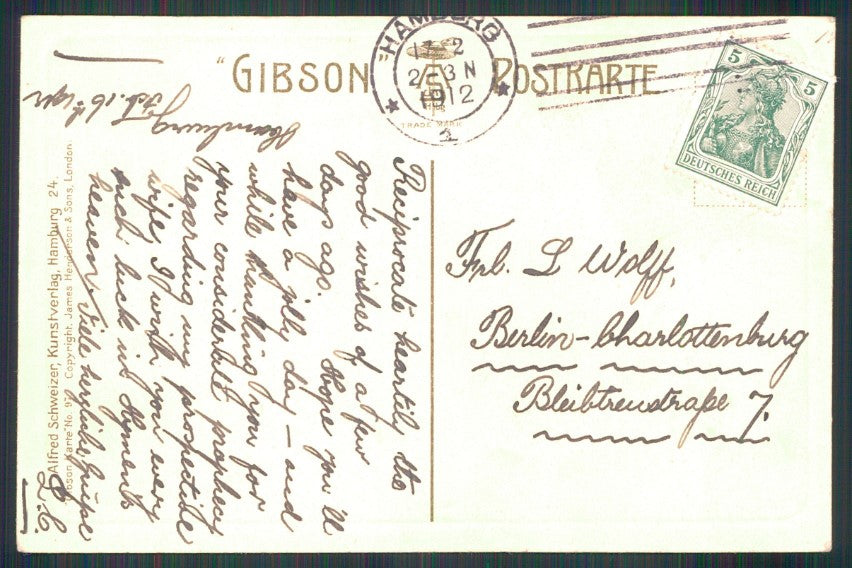 "GIBSON" POSTKARTE
TRADE MARK
HAMBURG
2-3 N
1912
2
5
5
DEUTSCHES REICH
Hamburg
Feb. 16th 1912
Reciprocate heartily the
good wishes of a few
days ago. Hope you'll
have a jolly day – and
while thanking you for
your considerate prophecy
regarding my prospective
wife, I wish you every
such luck in Hymen's
heaven. Viele herzliche Grüße
L. C.
Frl. L Wolff,
Berlin-Charlottenburg
Bleibtreustraße 7.
Alfred Schweizer, Kunstverlag, Hamburg 24.
Gibson Karte No. Copyright, James Henderson & Sons, London.